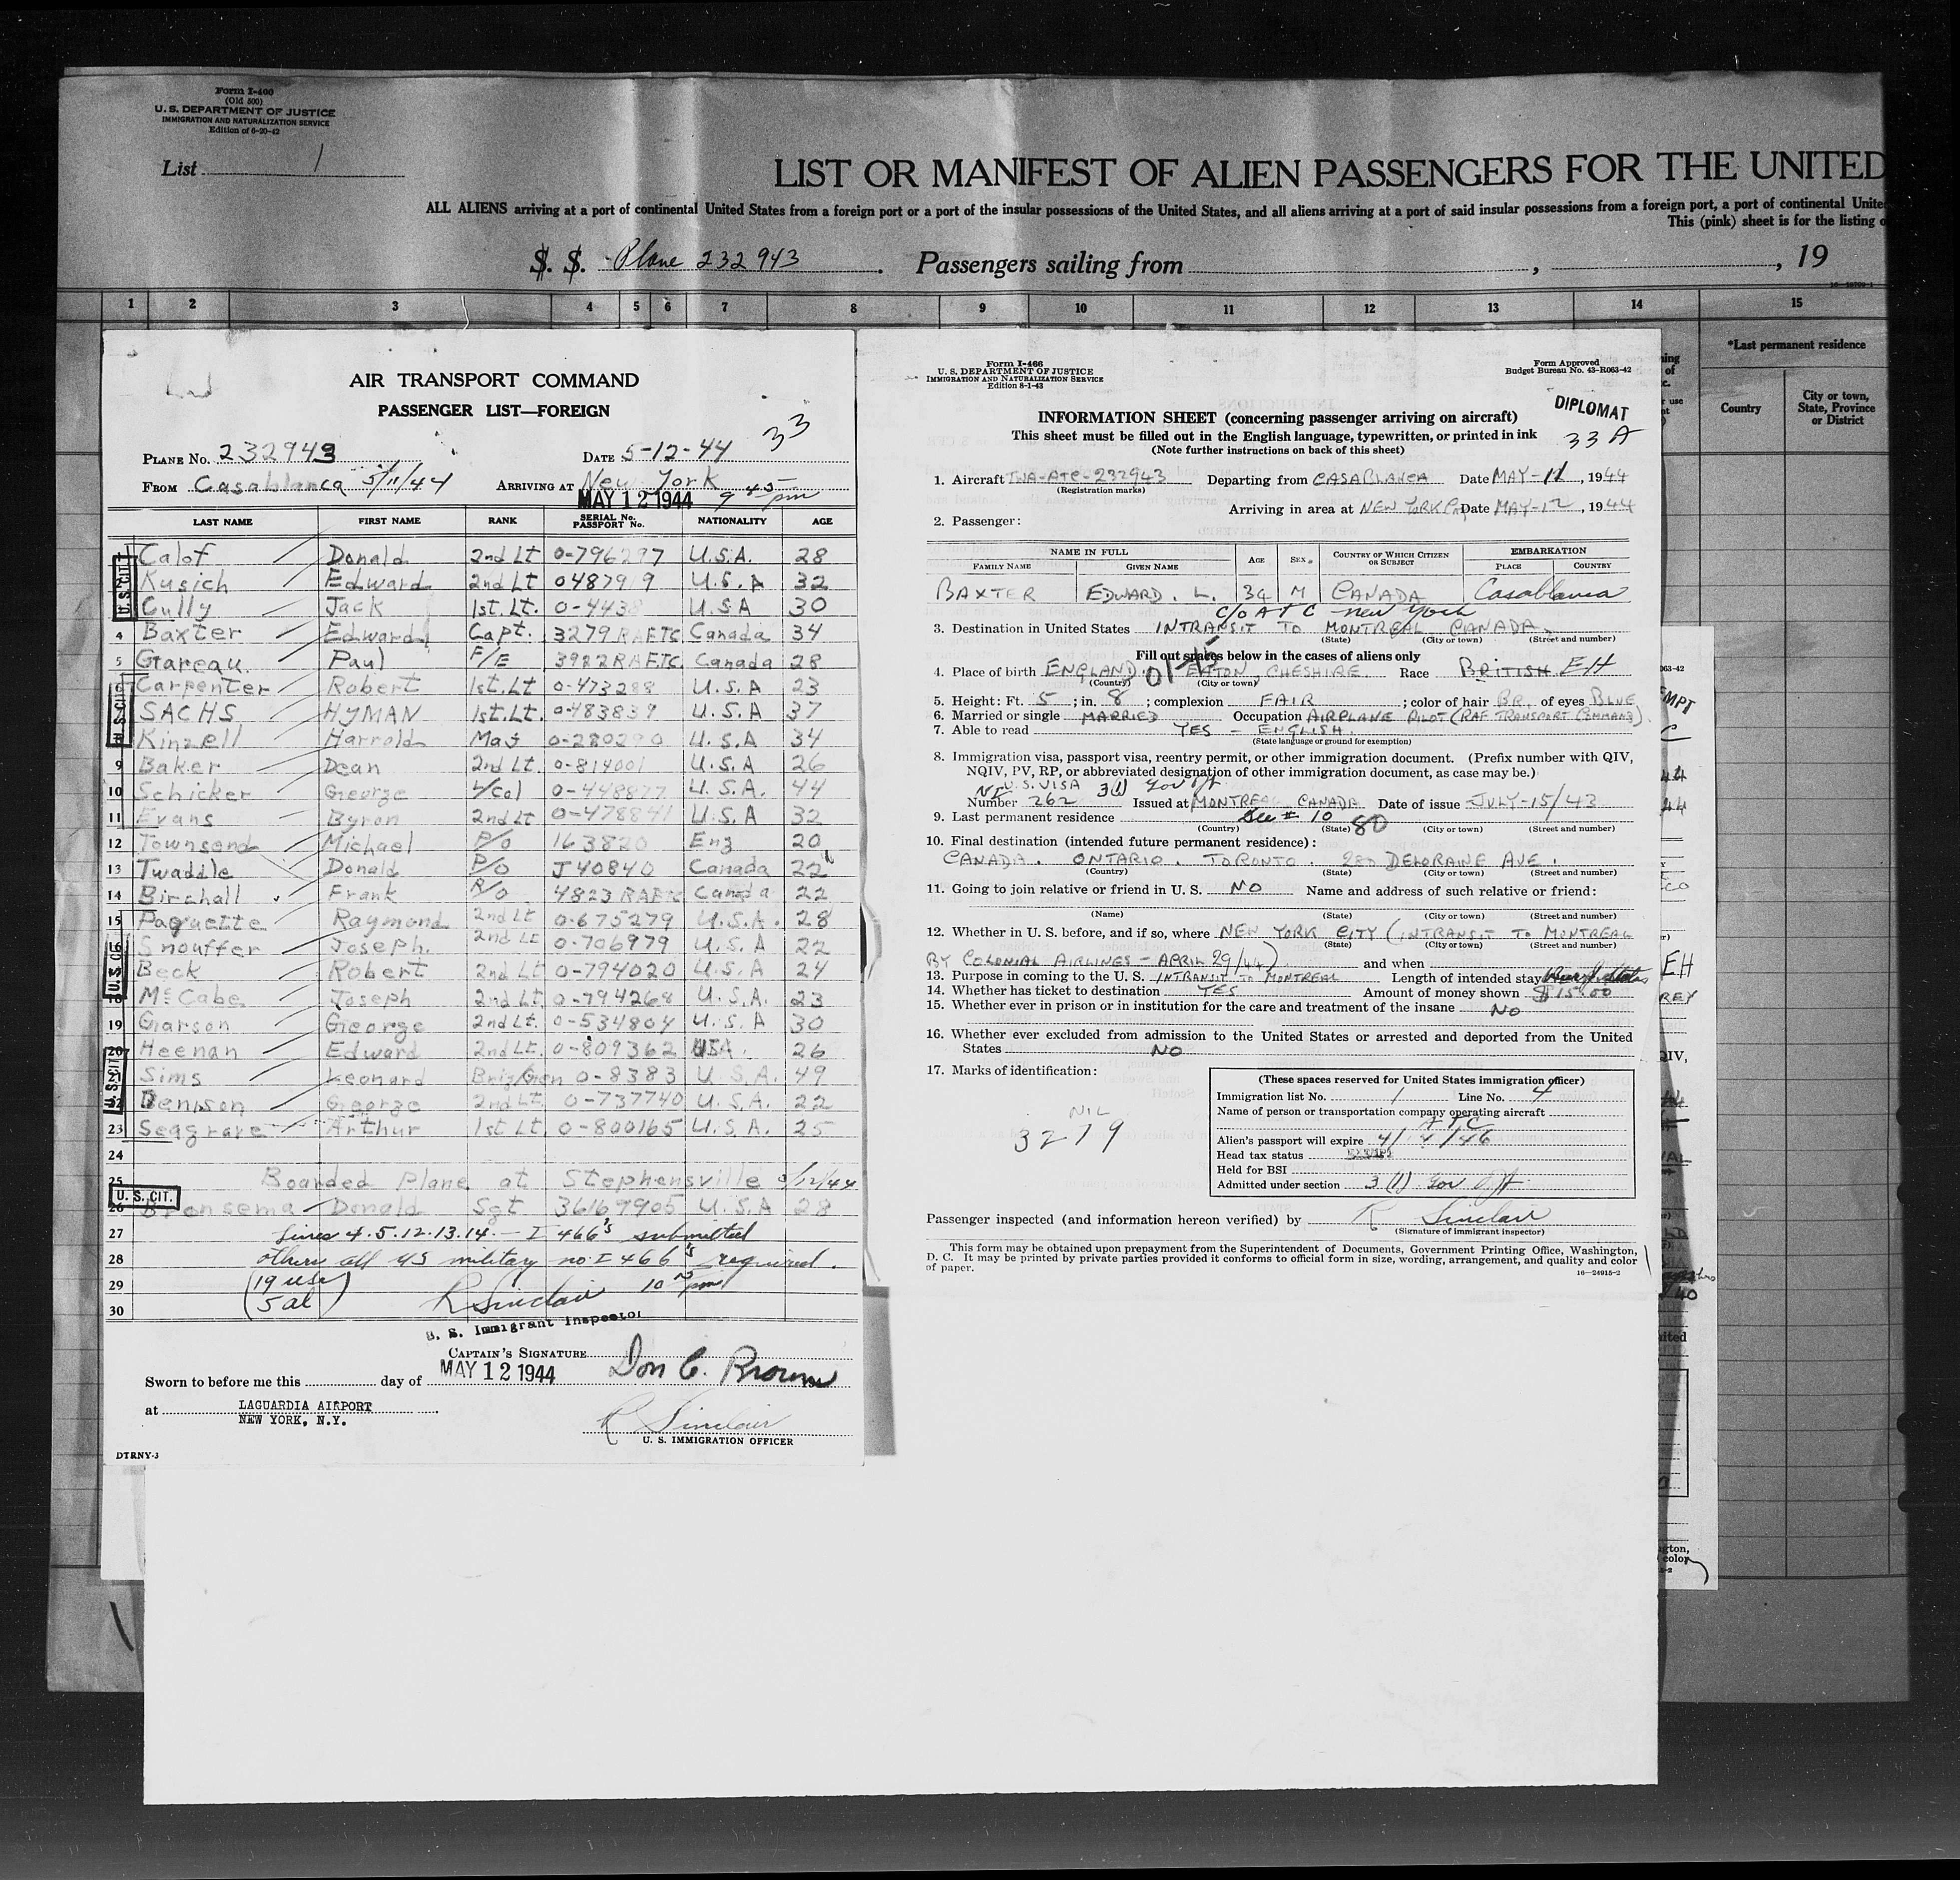 Form I-400
(Old 500)
U. S. DEPARTMENT OF JUSTICE
IMMIGRATION AND NATURALIZATION SERVICE
Edition of 6-20-42
List 1
LIST OR MANIFEST OF ALIEN PASSENGERS FOR THE UNITED
ALL ALIENS arriving at a port of continental United States from a foreign port or a port of the insular possessions of the United States, and all aliens arriving at a port of said insular possessions from a foreign port, a port of continental Unite
This (pink) sheet is for the listing o
S. S. Plane 232943. Passengers sailing from , , 19
1 2 3 4 5 6 7 8 9 10 11 12 13 14 15
*Last permanent residence
Country
City or town, State, Province or District
AIR TRANSPORT COMMAND
PASSENGER LIST—FOREIGN
33
PLANE No. 232943 DATE 5-12-44
FROM Casablanca 5/11/44 ARRIVING AT New York
MAY 12 1944 9 45 pm
LAST NAME FIRST NAME RANK SERIAL No. PASSPORT No. NATIONALITY AGE
U.S. CIT.
Calof Donald 2nd Lt 0-796297 U.S.A. 28
Kusich Edward 2nd Lt 0487919 U.S.A 32
Cully Jack 1st. Lt. 0-4438 U.S.A 30
4 Baxter Edward Capt. 3279 RAFTC Canada 34
5 Gareau Paul F/E 3982 RAFTC Canada 28
6 Carpenter Robert 1st. Lt 0-473288 U.S.A 23
7 SACHS HYMAN 1st. Lt. 0-483839 U.S.A 37
8 Kinzell Harrold Maj 0-280290 U.S.A 34
9 Baker Dean 2nd Lt. 0-814001 U.S.A 26
10 Schicker George L/Col 0-448877 U.S.A. 44
11 Evans Byron 2nd Lt 0-478841 U.S.A 32
12 Townsend Michael P/O 163820 Eng 20
13 Twaddle Donald P/O J40840 Canada 22
14 Birchall Frank R/O 4823 RAFTC Canada 22
15 Paquette Raymond 2nd Lt 0-675279 U.S.A. 28
16 Snouffer Joseph. 2nd Lt 0-706979 U.S.A 22
Beck Robert 2nd Lt 0-794020 U.S.A 24
18 McCabe Joseph 2nd Lt. 0-794268 U.S.A. 23
19 Garson George 2nd Lt. 0-534804 U.S.A 30
20 Heenan Edward 2nd Lt. 0-809362 USA. 26
21 Sims Leonard Brig/Gen 0-8383 U.S.A. 49
22 Denison George 2nd Lt. 0-737740 U.S.A. 22
23 Seagrave Arthur 1st Lt 0-800165 U.S.A. 25
24
25 Boarded Plane at Stephensville 5/12/44
U. S. CIT.
26 Bronsema Donald Sgt 36167905 U.S.A 28
27 Lines 4.5.12.13.14. — I 466's submitted
28 others all US military no I 466's required.
29 (19 usc 10 pm
30 5 al) R Sinclair
U. S. Immigrant Inspector
CAPTAIN'S SIGNATURE Don C. Brown
Sworn to before me this day of MAY 12 1944
at LAGUARDIA AIRPORT
NEW YORK, N.Y.
R Sinclair
U. S. IMMIGRATION OFFICER
DTRNY-3
Form I-466
U. S. DEPARTMENT OF JUSTICE
IMMIGRATION AND NATURALIZATION SERVICE
Edition 8-1-43
Form Approved
Budget Bureau No. 43-R063-42
DIPLOMAT
33 A
INFORMATION SHEET (concerning passenger arriving on aircraft)
This sheet must be filled out in the English language, typewritten, or printed in ink
(Note further instructions on back of this sheet)
1. Aircraft TWA-ATC-232943 Departing from CASABLANCA Date MAY-11, 1944
(Registration marks)
Arriving in area at NEW YORK Date MAY-12, 1944
2. Passenger:
NAME IN FULL AGE SEX COUNTRY OF WHICH CITIZEN OR SUBJECT EMBARKATION
FAMILY NAME GIVEN NAME PLACE COUNTRY
BAXTER EDWARD. L. 34 M CANADA Casablanca
c/o ATC New York
3. Destination in United States INTRANSIT TO MONTREAL CANADA.
(State) (City or town) (Street and number)
Fill out spaces below in the cases of aliens only
4. Place of birth ENGLAND. EATON, CHESHIRE. Race BRITISH EH
(Country) (City or town)
5. Height: Ft. 5; in. 8; complexion FAIR; color of hair BR. of eyes BLUE
6. Married or single MARRIED Occupation AIRPLANE PILOT (RAF TRANSPORT COMMAND)
7. Able to read YES - ENGLISH.
(State language or ground for exemption)
8. Immigration visa, passport visa, reentry permit, or other immigration document. (Prefix number with QIV, NQIV, PV, RP, or abbreviated designation of other immigration document, as case may be.)
U.S. VISA 3(1) Gov Off
Number 262 Issued at MONTREAL CANADA Date of issue JULY-15/43
9. Last permanent residence See # 10 80
(Country) (State) (City or town) (Street and number)
10. Final destination (intended future permanent residence):
CANADA. ONTARIO. TORONTO. 280 DELORAINE AVE.
(Country) (State) (City or town) (Street and number)
11. Going to join relative or friend in U. S. NO Name and address of such relative or friend:
(Name) (State) (City or town) (Street and number)
12. Whether in U. S. before, and if so, where NEW YORK CITY (INTRANSIT TO MONTREAL
(State) (City or town) (Street and number)
BY COLONIAL AIRLINES - APRIL 29/44) and when
13. Purpose in coming to the U. S. INTRANSIT TO MONTREAL Length of intended stay
14. Whether has ticket to destination YES Amount of money shown $15.00
15. Whether ever in prison or in institution for the care and treatment of the insane NO
16. Whether ever excluded from admission to the United States or arrested and deported from the United States NO
17. Marks of identification:
NIL
3279
(These spaces reserved for United States immigration officer)
Immigration list No. 1 Line No. 4
Name of person or transportation company operating aircraft
ATC
Alien's passport will expire 4/4/46
Head tax status EXEMPT
Held for BSI
Admitted under section 3 (1) Gov Off.
Passenger inspected (and information hereon verified) by R Sinclair
(Signature of immigrant inspector)
This form may be obtained upon prepayment from the Superintendent of Documents, Government Printing Office, Washington,
D. C. It may be printed by private parties provided it conforms to official form in size, wording, arrangement, and quality and color
of paper.
16—24915-2